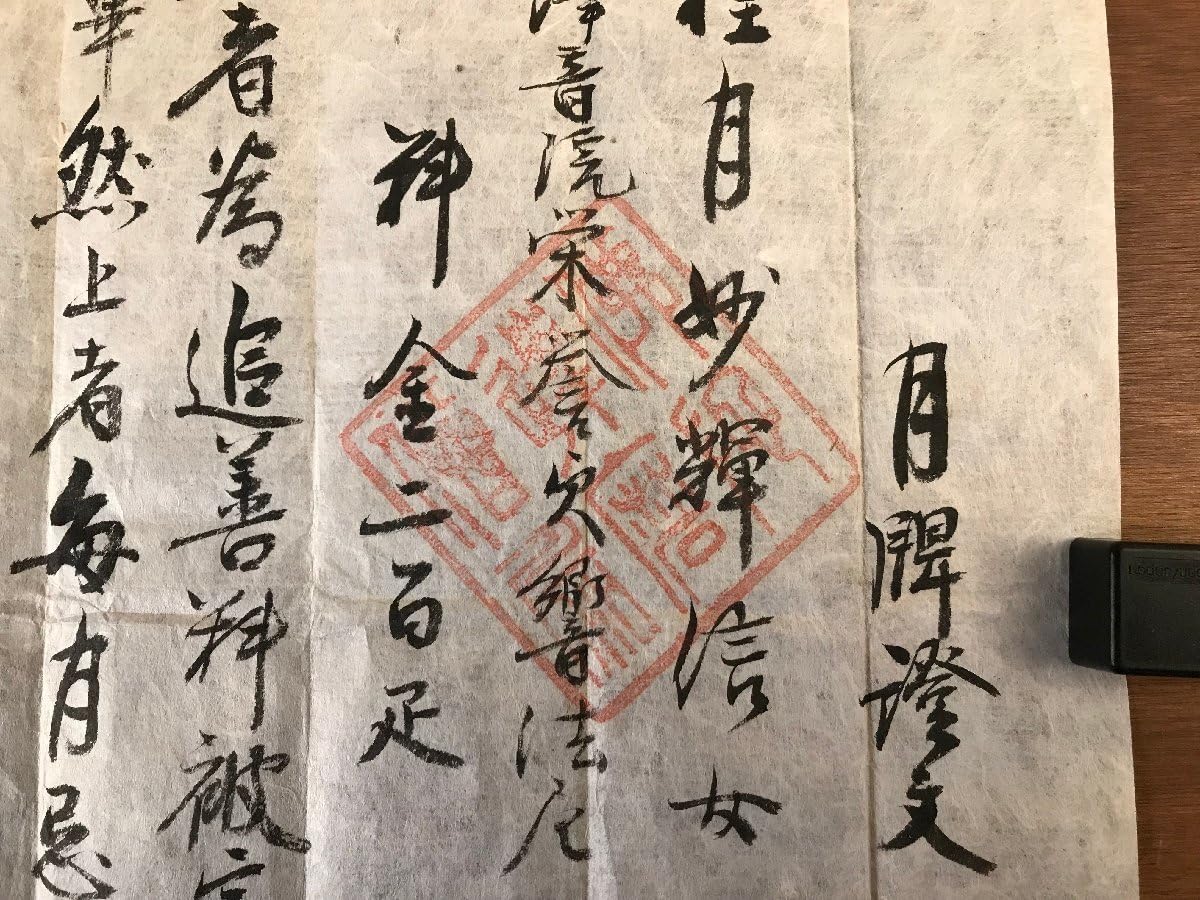 月牌證文
桂月妙輝信女
浄音院栄誉欠郷音法尼
料金二百疋
者為追善料被
畢然上者毎月忌